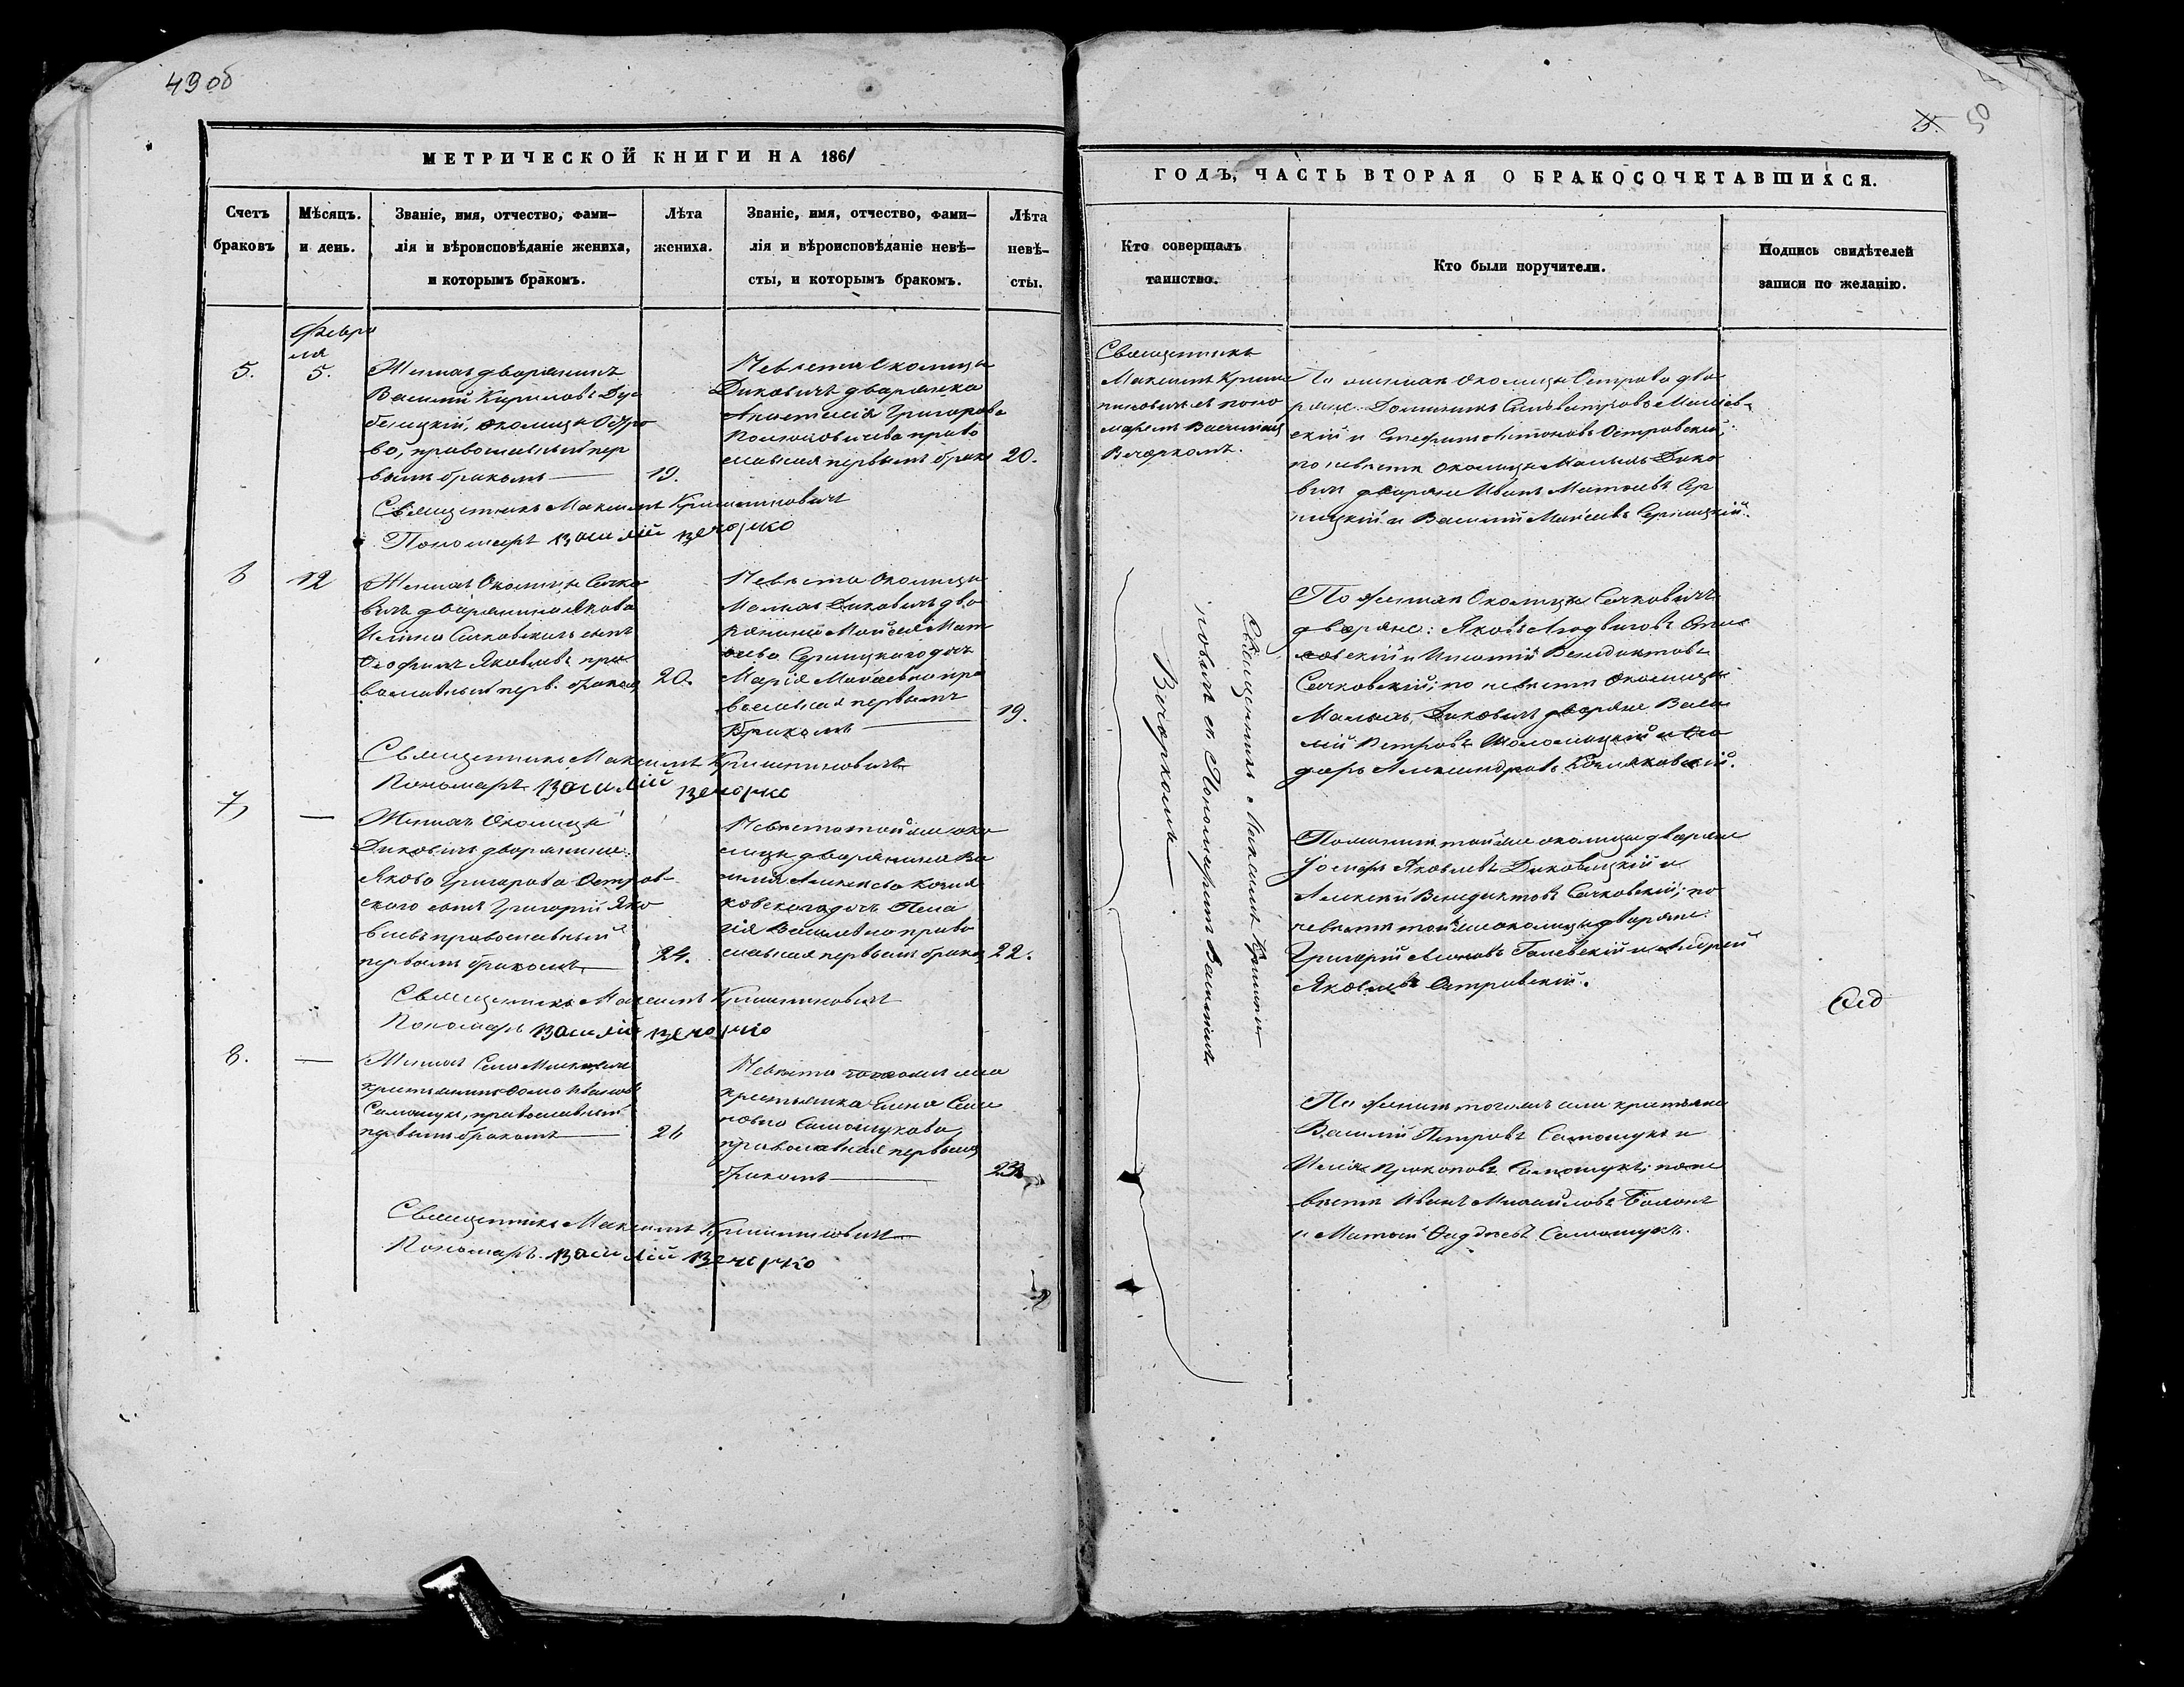 49 об
МЕТРИЧЕСКОЙ КНИГИ НА 1861
Счетъ браковъ
Мѣсяцъ. и день.
Званіе, имя, отчество, фами-
лія и вѣроисповѣданіе жениха,
и которымъ бракомъ.
Лѣта
жениха.
Званіе, имя, отчество, фами-
лія и вѣроисповѣданіе невѣ-
сты, и которымъ бракомъ.
Лѣта
невѣ-
сты.
Февра
ля
5.
5.
Женихъ дворянинъ
Василій Кириловъ Ду-
бецкій, околицы Остро
во, православный пер
вымъ бракомъ
19.
Невѣста Околицы
Диковичъ дворянка
Анастасія Григорова
православная первымъ брако
20.
Священникъ Максимъ
Пономарь Василій Вечорко
6
12
Женихъ Околицы Сачко
вичъ дворянина Якова
Ильина Сачковскаго сынъ
Феофилъ Яковлевъ пра
вославный перв. бракомъ
20.
Невѣста Околицы
Малыхъ Диковичъ дво
рянина Мойсея Мат
Серницкаго доч
Марія Мойсеевна пра
вославная первымъ
Бракомъ
19.
Священникъ Максимъ
Пономарь Василій Вечорко
7,
—
Женихъ Околицы
Диковичъ дворянина
Якова Григорова Остров-
скаго сынъ Григорій Яко
влевъ православный
первымъ бракомъ
24.
Невѣста той же око
лицы дворянина Ва
силія Алексѣева
доч Пела
гія Васильевна право
славная первымъ брако
22.
Священникъ Максимъ
Пономарь Василій Вечорко
8.
—
Женихъ Села
крестьянинъ Фома Ивановъ
Самощукъ, православный
первымъ бракомъ
Невѣста того же села
крестьянка Елена Семе
нова Самощукова,
православная первымъ
бракомъ
Священникъ Максимъ
Пономарь Василій Вечорко
50
ГОДЪ, ЧАСТЬ ВТОРАЯ О БРАКОСОЧЕТАВШИХСЯ.
Кто совершалъ
таинство.
Кто были поручители.
Подпись свидѣтелей
записи по желанію.
Священникъ
Максимъ
съ поно
маремъ Василіемъ
Вечоркомъ.
По женихѣ околицы Острова дво
ряне Доминикъ
и Стефанъ Антоновъ Островскій;
по невѣстѣ околицы Малыхъ Дико
вичъ дворяне Иванъ Матѳеевъ Сер
ницкій и Василій Мойсеевъ Серницкій.
Священникъ Максимъ
съ Пономаремъ Василіемъ
Вечоркомъ
По женихѣ Околицы Сачковичъ
дворяне: Яковъ Людвиговъ
и Игнатій Венедиктовъ
Сачковскій; по невѣстѣ Околицы
Малыхъ Диковичъ дворяне Васи
лій Петровъ и Фео
доръ Александровъ
По женихѣ той же околицы дворяне
Іосифъ Яковлевъ Диковицкій и
Алексѣй Венедиктовъ Сачковскій; по
невѣстѣ той же околицы дворяне:
Григорій и Андрей
Яковлевъ Островскій.
По женихѣ того же села крестьяне
Василій Петровъ Самощукъ и
Илія Прокоповъ Самощукъ; по не
вѣстѣ Иванъ Михайловъ
и Матѳей Самощукъ.